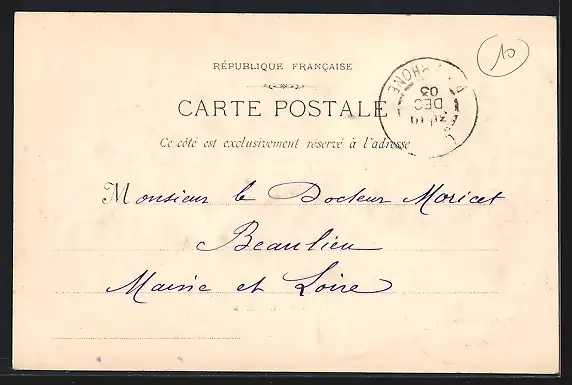 RÉPUBLIQUE FRANÇAISE
CARTE POSTALE
Ce côté est exclusivement réservé à l'adresse
Monsieur le Docteur Moricet
Beaulieu
Maine et Loire
10
RHONE
DEC
03